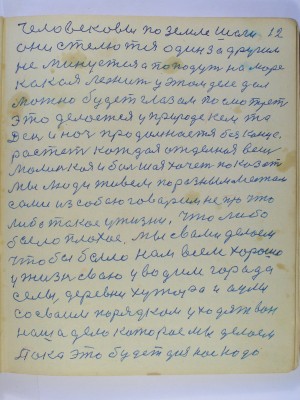 Человековы по земле шаги 12
они стелются один за другим
не минуется а попадут на море
какая лежит у этом деле дал
можно будет глазам посмотреть
это делается у природе кем та
Ден и ноч продолжается без конца,
растет каждая отделная вещ
Малинкая и болшая хочет показат
мы люди живем по разным местам
сами из собою говорем не про что
либо такое у жизни, что либо
было плохое, мы с вами делаем
чтобы было нам всем хорошо
у жизн свою уводим города
селы, деревни хутора и аулы
со своим порядком уходят вон
наша дело которое мы делаем
Пока это будет для нас надо